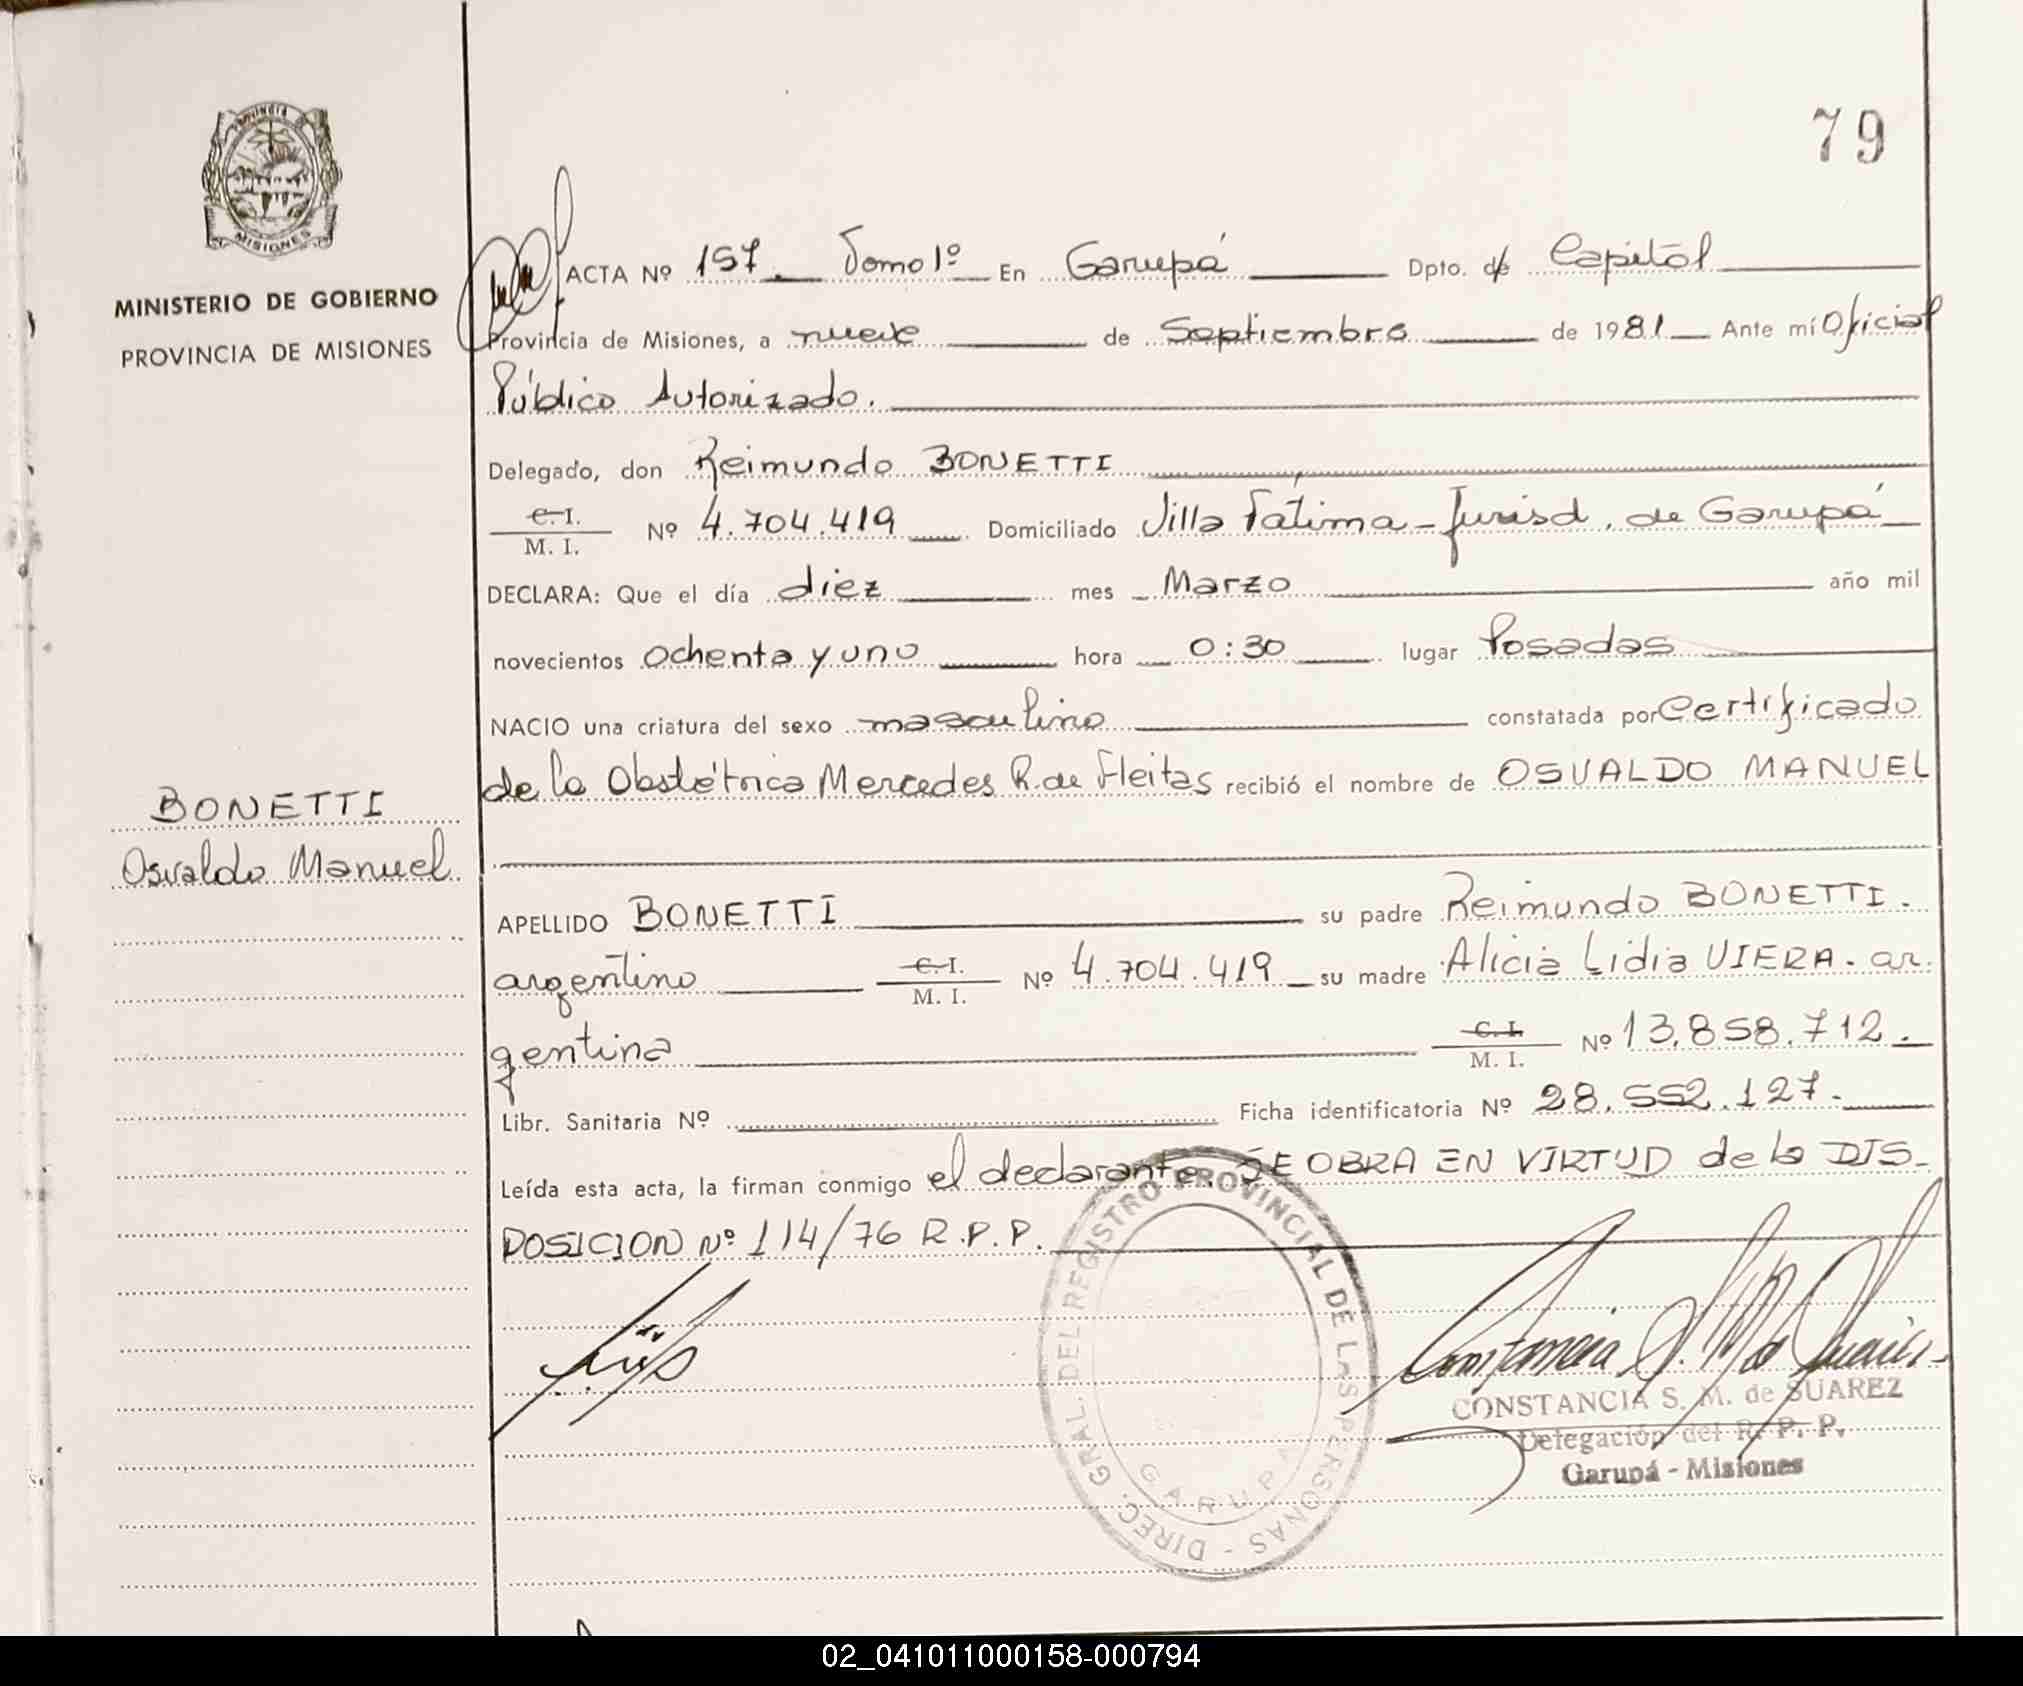 79
PROVINCIA
MISIONES
MINISTERIO DE GOBIERNO
PROVINCIA DE MISIONES
ACTA Nº 157 Tomo 1º En Garupá Dpto. de Capital
Provincia de Misiones, a nueve de Septiembre de 1981 Ante mí Oficial
Público Autorizado.
Delegado, don Reimundo BONETTI
C. I.
M. I. Nº 4.704.419 Domiciliado Villa Fátima - Jurisd. de Garupá
DECLARA: Que el día diez mes Marzo año mil
novecientos ochenta y uno hora 0:30 lugar Posadas
NACIO una criatura del sexo masculino constatada por Certificado
de la Obstétrica Mercedes R. de Fleitas recibió el nombre de OSVALDO MANUEL
BONETTI
Osvaldo Manuel.
APELLIDO BONETTI su padre Reimundo BONETTI.
argentino C. I. M. I. Nº 4.704.419 su madre Alicia Lidia VIERA. ar.
gentina C. I. M. I. Nº 13.858.712.
Libr. Sanitaria Nº Ficha identificatoria Nº 28.552.127.
Leída esta acta, la firman conmigo el declarante. SE OBRA EN VIRTUD de la DIS-
POSICION Nº 114/76 R.P.P.
DIREC. GRAL. DEL REGISTRO PROVINCIAL DE LAS PERSONAS -
GARUPA
Constancia S. M. de Suarez
CONSTANCIA S. M. de SUAREZ
Delegación del R. P. P.
Garupá - Misiones
02_041011000158-000794